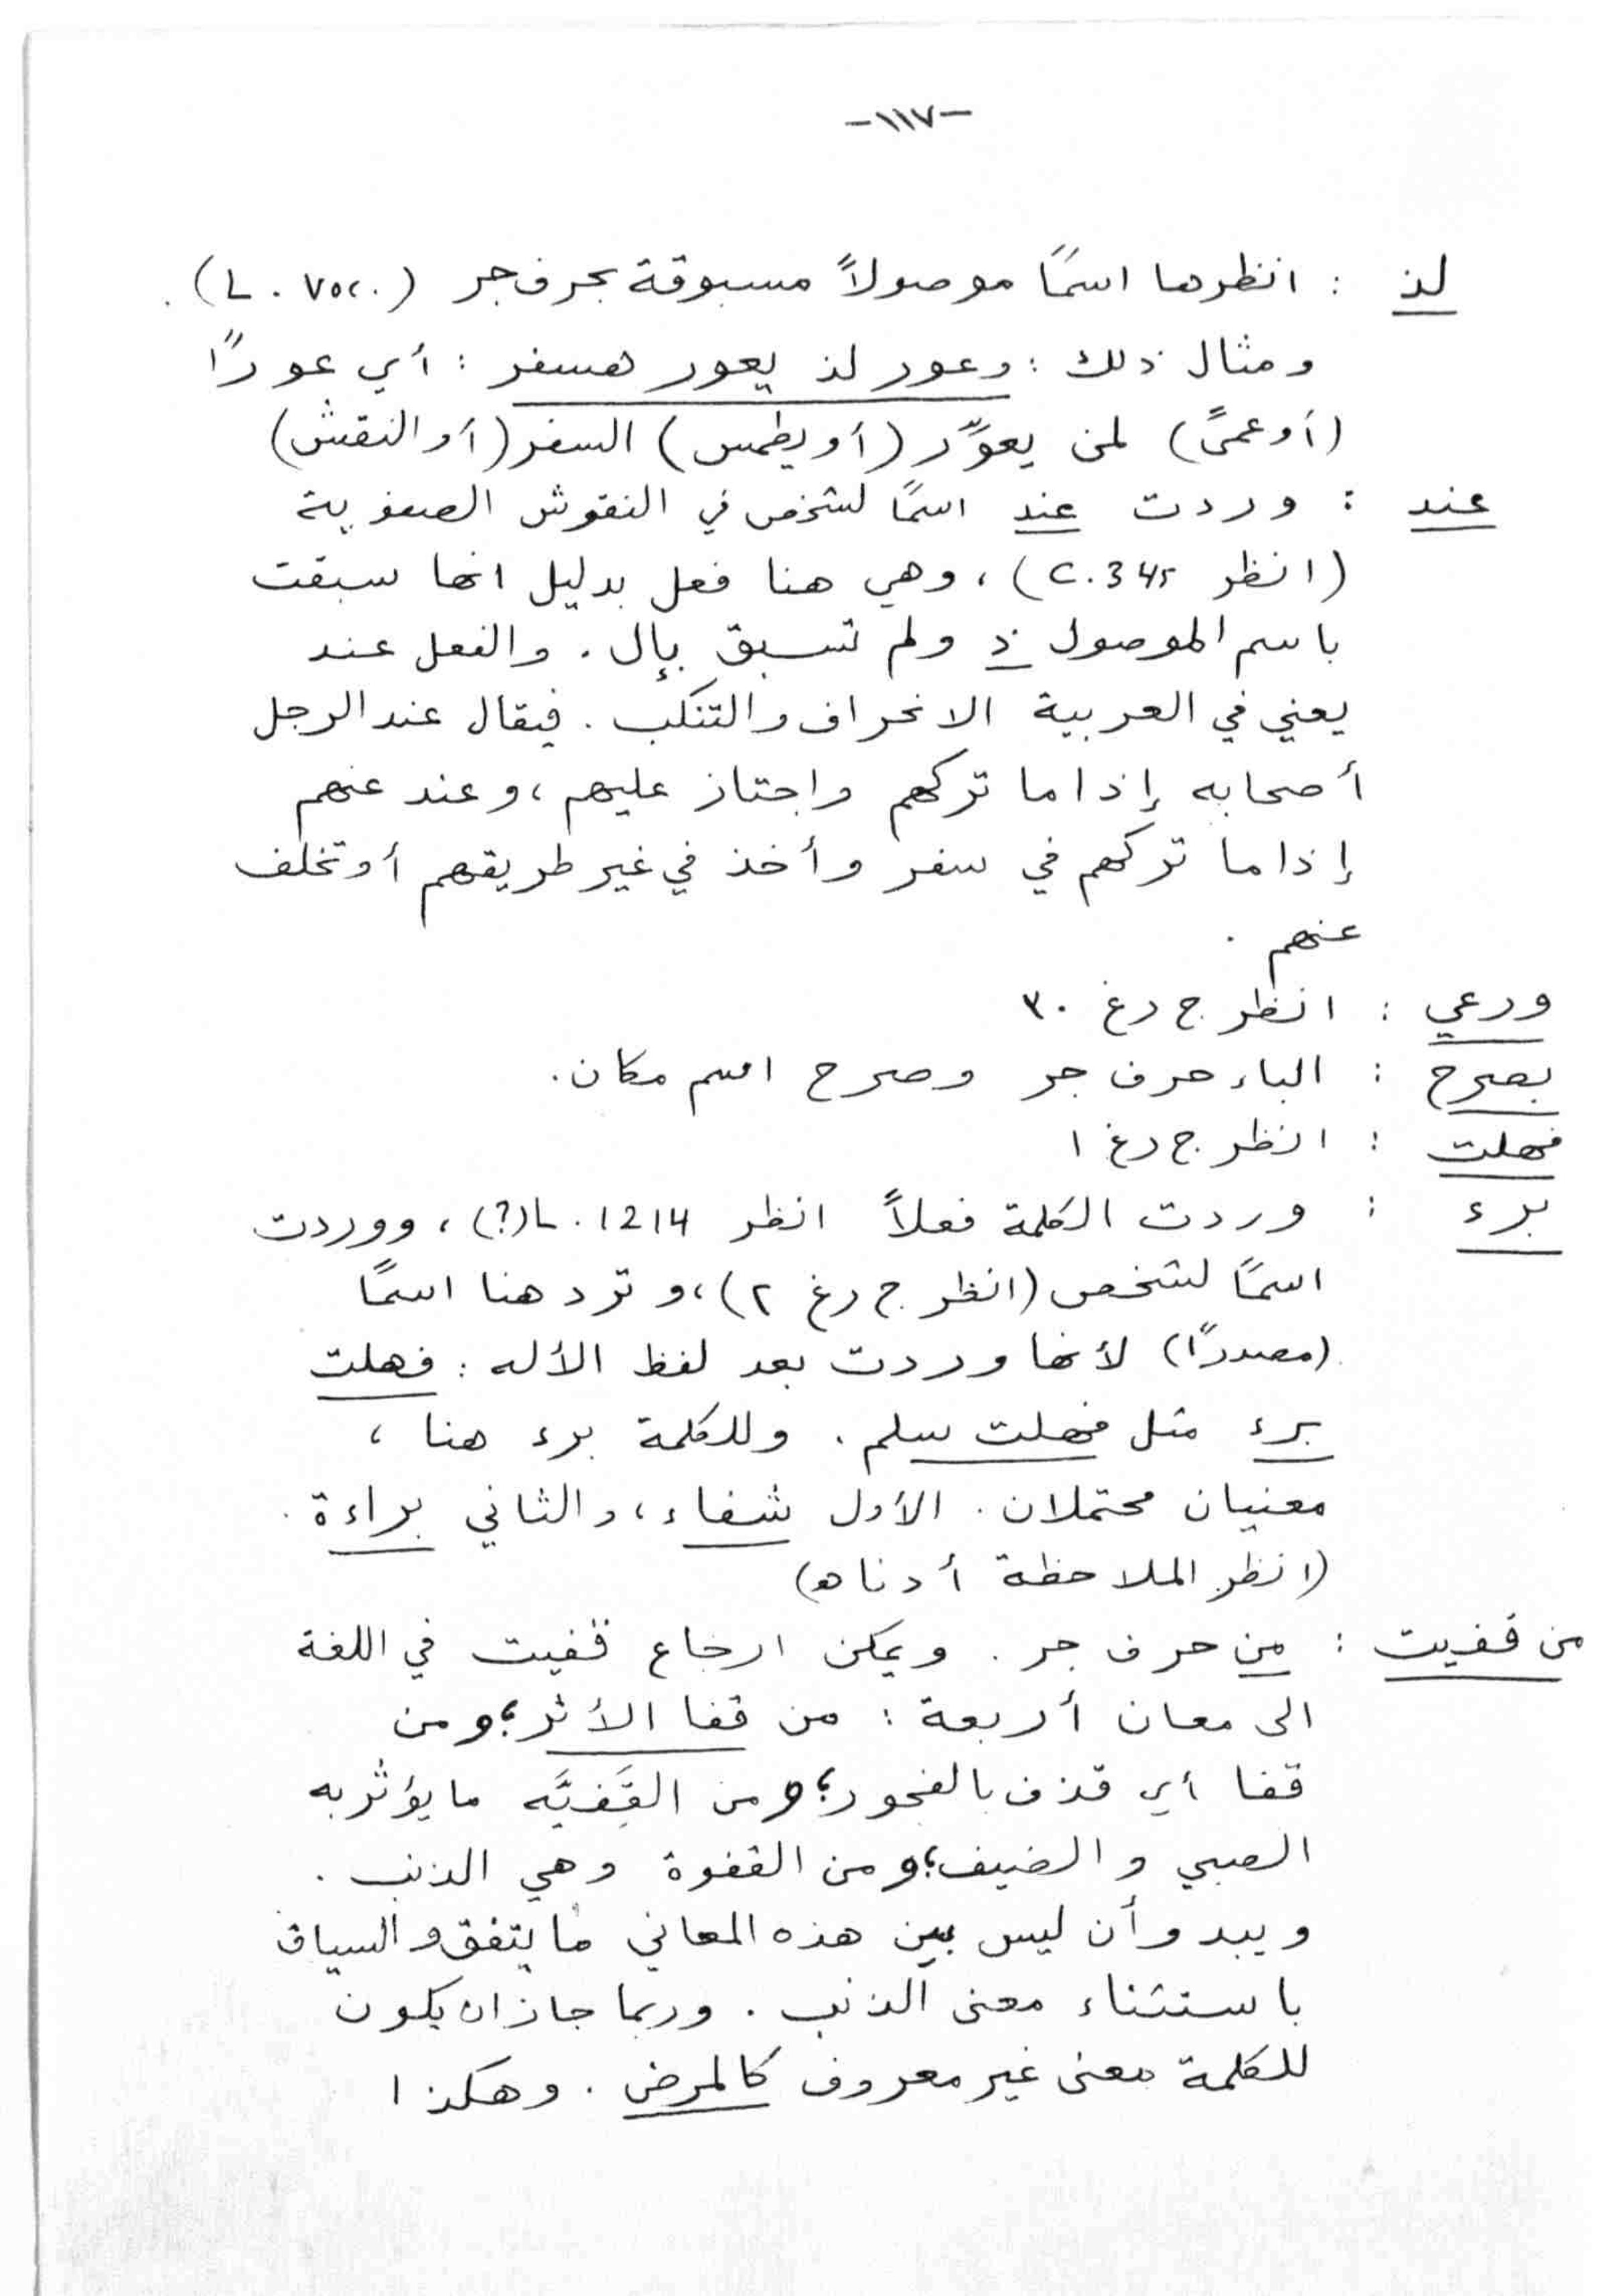 -١١٧-
لذ : انظرها اسمًا موصولاً مسبوقة بحرف جر (L. Voc.).
ومثال ذلك : وعور لذ يعور هسفر : أي عورًا
(أو عمىً) لمن يعوّر (أو يطمس) السفر (أو النقش)
عند : وردت عند اسمًا لشخص في النقوش الصفوية
(انظر C. 345) ، وهي هنا فعل بدليل انها سبقت
باسم الموصول ذ ولم تسبق بإل . والفعل عند
يعني في العربية الانحراف والتنكب . فيقال عند الرجل
أصحابه إذا ما تركهم واجتاز عليهم ، وعند عنهم
إذا ما تركهم في سفر وأخذ في غير طريقهم أو تخلف
عنهم .
ورعي : انظر ج رغ ٣٠
بصرح : الباء حرف جر وصرح اسم مكان .
فهلت : انظر ج رغ ١
برء : وردت الكلمة فعلاً انظر L. 1214 (?) ، ووردت
اسمًا لشخص (انظر ج رغ ٢) ، وترد هنا اسمًا
(مصدرًا) لأنها وردت بعد لفظ الأله : فهلت
برء مثل فهلت سلم . وللكلمة برء هنا ،
معنيان محتملان . الأول شفاء ، والثاني براءة .
(انظر الملاحظة أدناه)
من قفيت : من حرف جر . ويمكن ارجاع قفيت في اللغة
الى معان أربعة : من قفا الأثر ؛ ومن
قفا أي قذف بالفجور ؛ ومن القَفيَّه ما يؤثر به
الصبي والضيف ؛ ومن القفوة وهي الذنب .
ويبدو أن ليس بين هذه المعاني ما يتفق والسياق
باستثناء معنى الذنب . وربما جاز ان يكون
للكلمة معنى غير معروف كالمرض . وهكذا